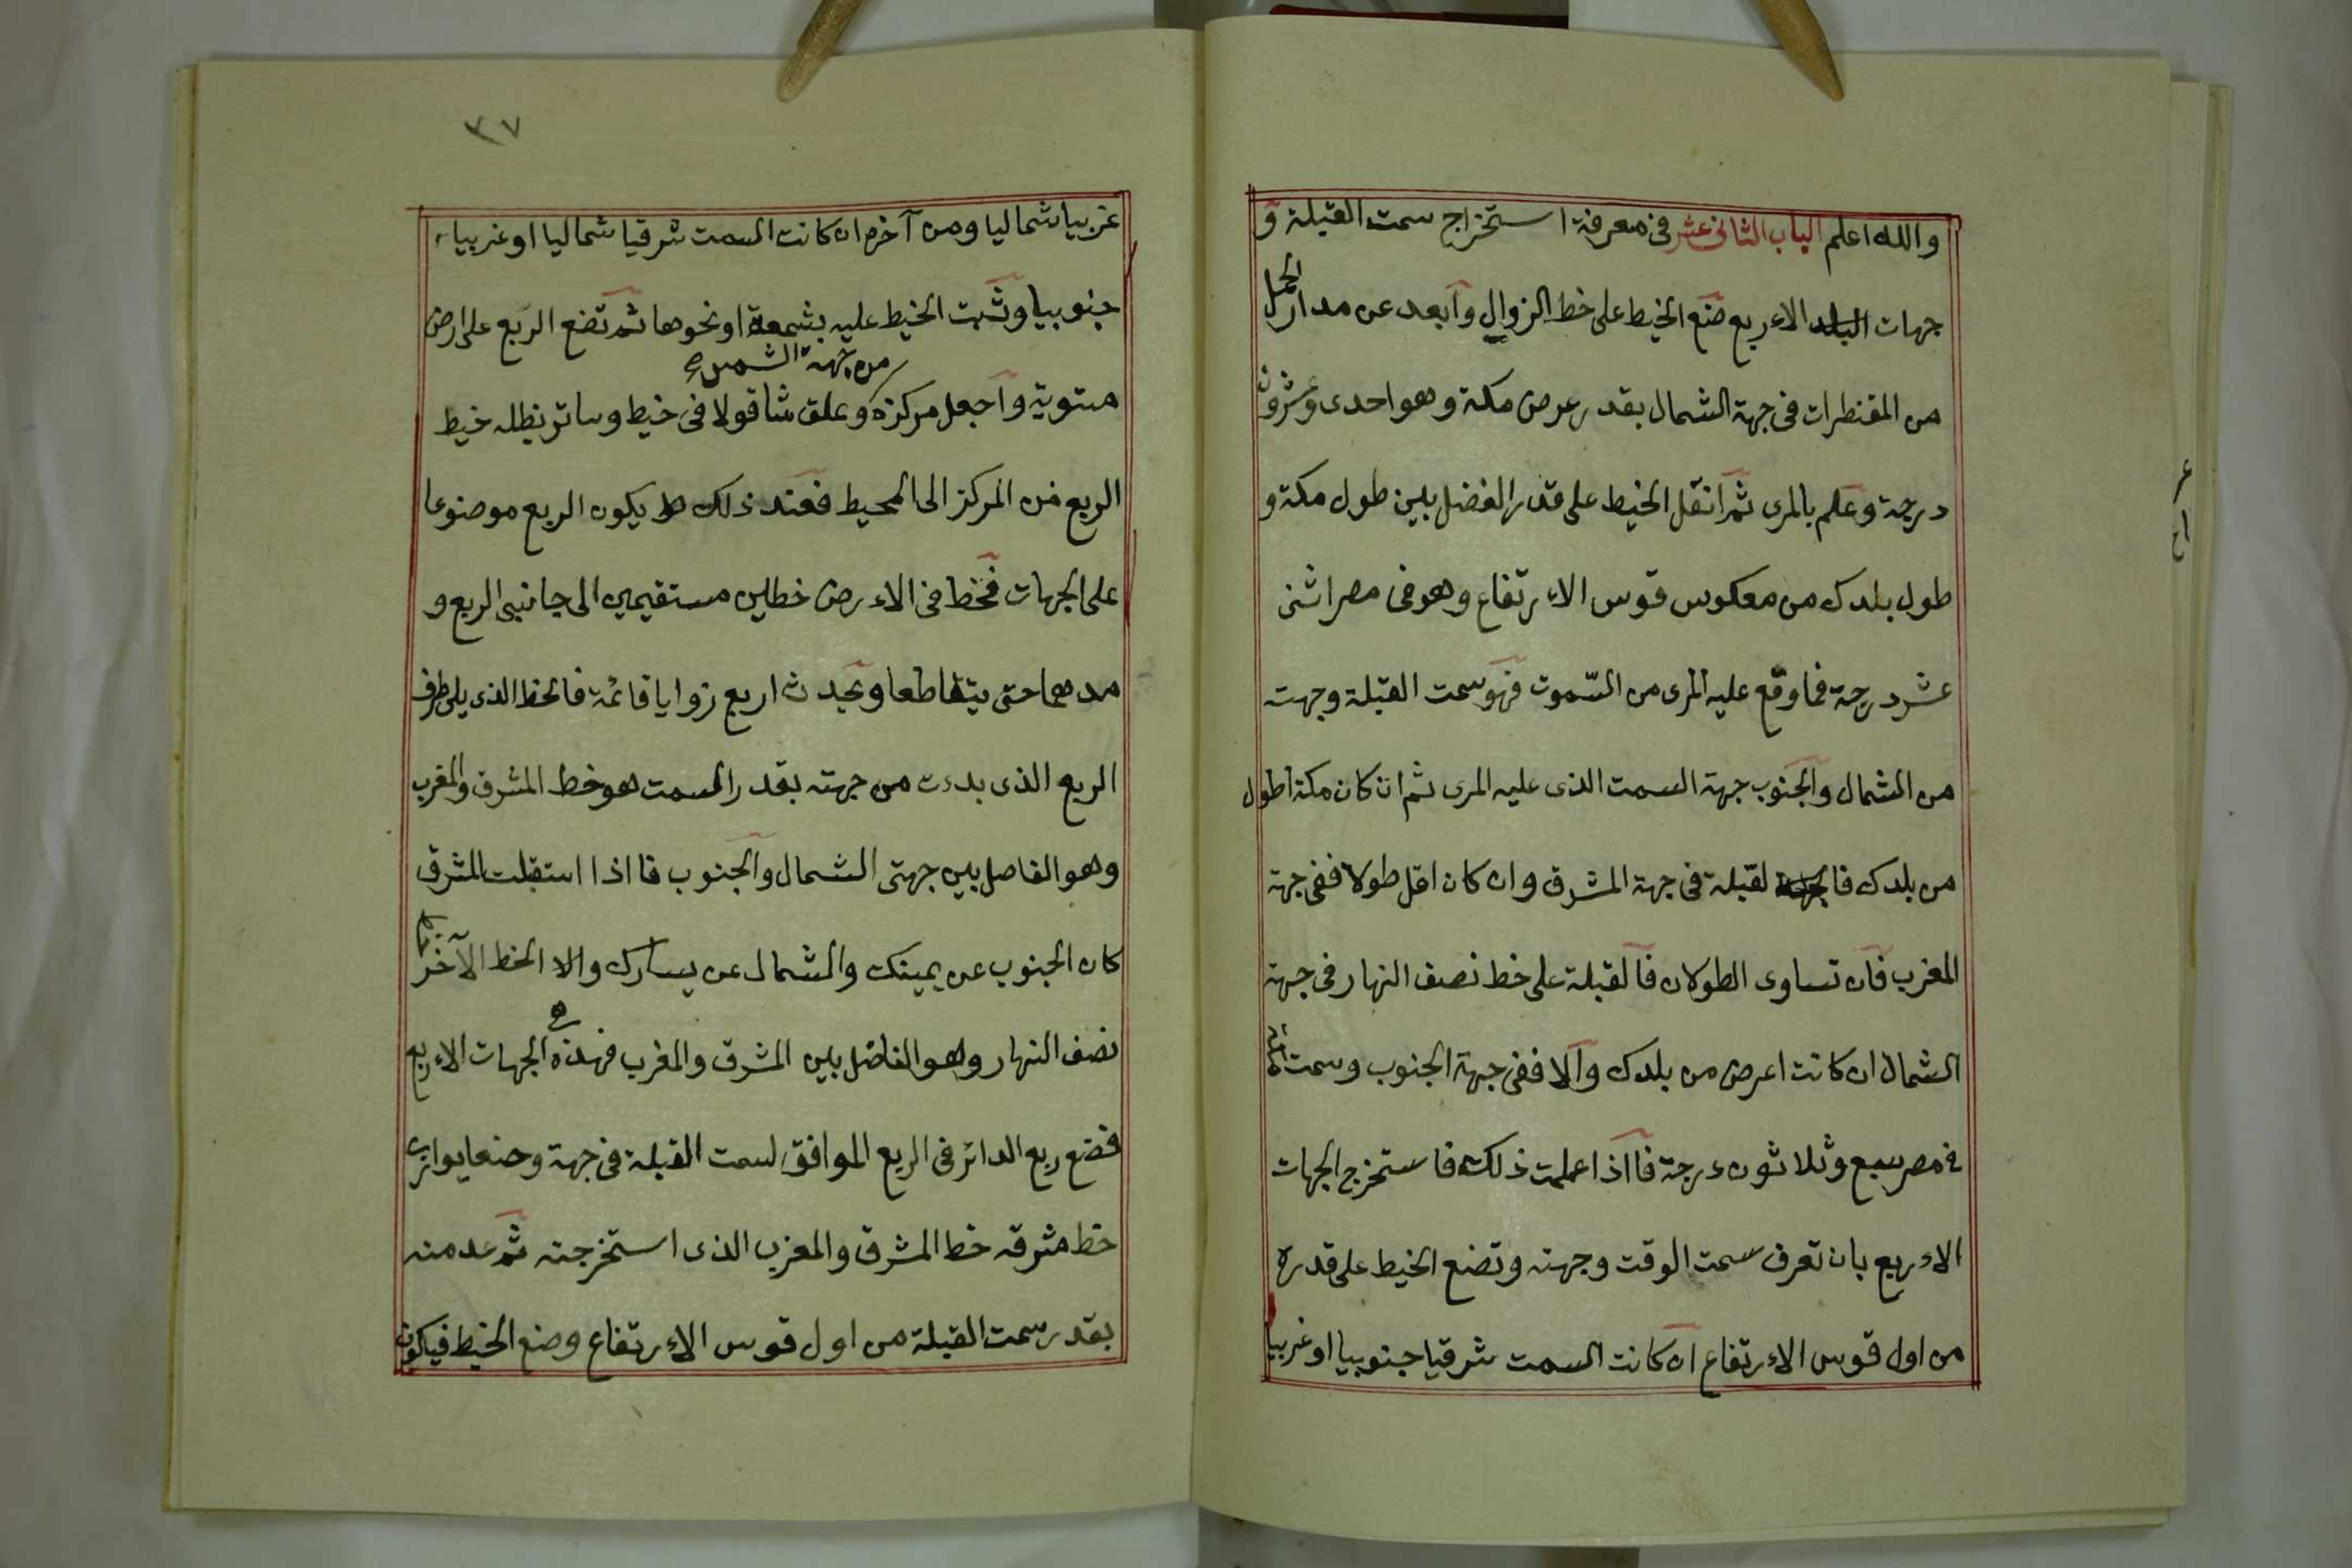 والله اعلم الباب الثانى عشر فى معرفة استخراج سمت القبلة و
جهات البلد الاءربع ضع الخيط على خط الزوال وابعد عن مدار الحمل
من المقنطرات فى جهة الشمال بقدر عرض مكة وهو احدى وعشرون
درجة وعلم بالمرى ثم انقل الخيط على قدر الفضل بين طول مكة و
طول بلدك من معكوس قوس الاءرتفاع وهو فى مصر اثنى
عشر درجة فما وقع عليه المرى من السموت فهو سمت القبلة وجهته
من الشمال والجنوب جهة السمت الذى عليه المرى ثم ان كان مكة اطول
من بلدك فا لقبلة فى جهة المشرق وان كان اقل طولا ففى جهة
المغرب فان تساوى الطولان فالقبلة على خط نصف النهار فى جهة
الشمال ان كانت اعرض من بلدك والا ففى جهة الجنوب وسمت
فى مصر سبع وثلاثون درجة فااذا علمت ذلك فاستخرج الجهات
الاءربع بان تعرف سمت الوقت وجهته وتضع الخيط على قدره
من اول قوس الاءرتفاع ان كانت السمت شرقيا جنوبيا او غربيا
٣٧
غربيا شماليا ومن آخره ان كانت السمت شرقيا شماليا او غربيا
جنوبيا وثبت الخيط عليه بشمعة او نحوها ثم تضع الربع على ارض
من جهة الشمس صح
مستوية واجعل مركزه وعلق شاقولا فى خيط وساتر بظله خيط
الربع من المركز الى المحيط فعند ذلك يكون الربع موضوعا
على الجهات فخط فى الاءرض خطين مستقيمين الى جانبى الربع و
مدهما حتى يتقاطعا ويحدث اربع زوايا قائمة فالخط الذى يلى طرف
الربع الذى بدءت من جهته بقدر السمت هو خط المشرق والمغرب
وهو الفاصل بين جهتى الشمال والجنوب فااذا استقبلت المشرق
كان الجنوب عن يمينك والشمال عن يسارك والا الخط الآخر
نصف النهار وهو الفاضل بين المشرق والمغرب فهذه الجهات الاءربع
فضع ربع الدائر فى الربع الموافق لسمت القبلة فى جهة وضعا يوازى
خط مشرقه خط المشرق والمغرب الذى استخرجته ثم عد منه
بقدر سمت القبلة من اول قوس الاءرتفاع وضع الخيط فيكون